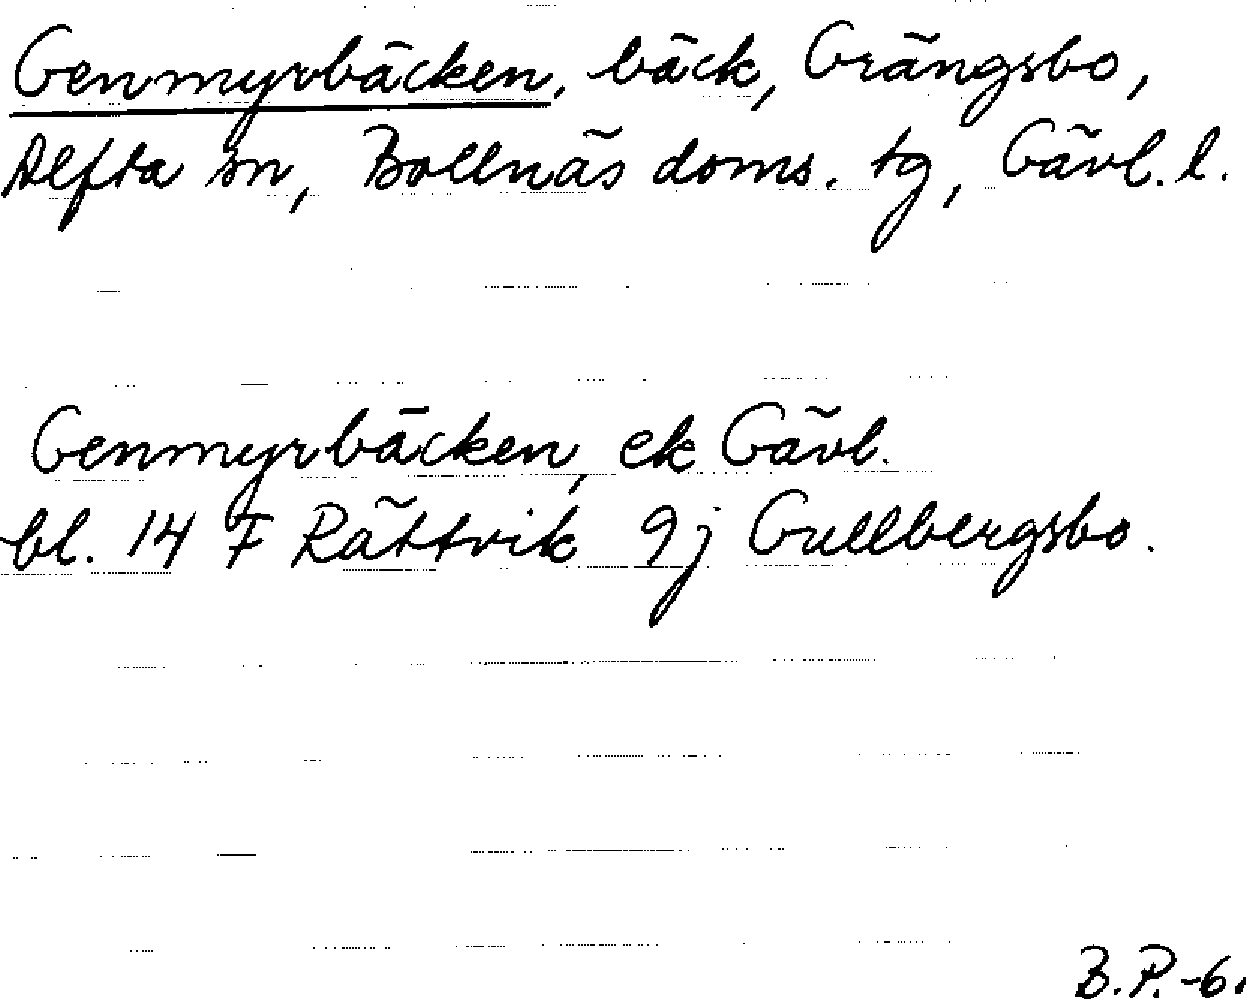 Genmyrbäcken, bäck, Grängsbo,
Alfta sn, Bollnäs doms. tg, Gävl. l.
Genmyrbäcken, ek Gävl.
bl. 14 F Rättvik 9j Gullbergsbo.
B.P.-6